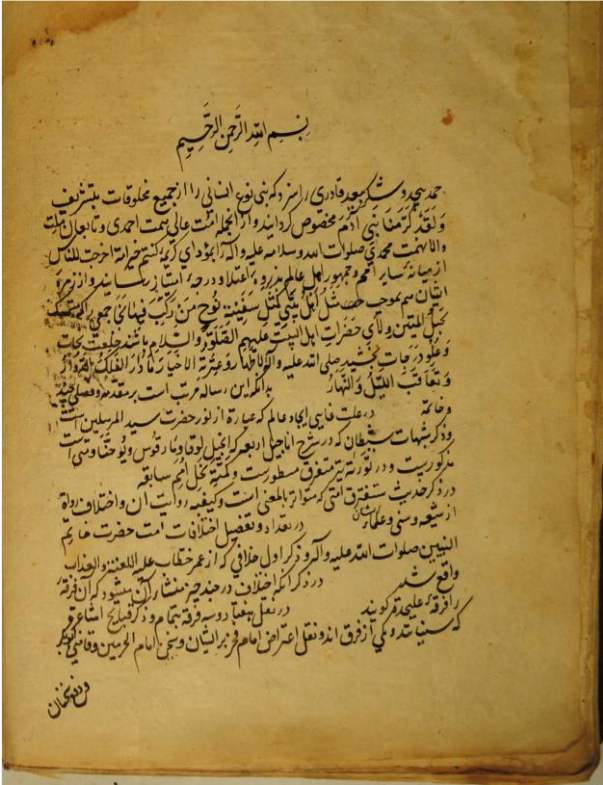 بسم الله الرحمن الرحیم
حمد بیحد و شکر بیعد قادری را سزد که بنی نوع انسانی را از جمیع مخلوقات بتشریف
وَلَقَدْ کَرَّمْنَا بَنِی آدَمَ مخصوص کردانید و از انجمله امت عالی سمت احمدی و تابعان ملت
والا نهمت محمدی صلوات الله وسلامه علیه وآله را بمؤدای کریمه کنتم خیر امة اخرجت للناس
از میانه سایر امم و جمهور اهل عالم بذروه اعتلا و درجه رسانید و از زمره
ایشان هم بموجب حدیث مثل اهل بیتی کمثل سفینة نوح من رکب فیها نجا جمعی را که تمسک
بحبل المتین ولای حضرات اهل البیت علیهم الصلوة والسلام باشند خلعت نجات
وعلو درجات بخشید صلی الله علیه وآله الاطهار وعترته الاخیار ما دار الفلک الدوار
وتعاقب اللیل والنهار بدانکه این رساله مرتب است بر مقدمه و فصلی چند
و خاتمه در علت غایی ایجاد عالم که عبارة از نور حضرت سید المرسلین است
و ذکر شبهات شیطان که در شرح اناجیل اربعه که انجیل لوقا و مارقوس و یوحنا و متی است
مذکوریست و در توریة نیز متفرق مسطورست و کتب نحل امم سابقه
در ذکر حدیث ستفترق امتی که متواتر بالمعنی است و کیفیه روایت ان و اختلاف رواة
از شیعه و سنی و علماء ایشان در تعداد و تفصیل اختلافات امت حضرت خاتم
النبیین صلوات الله علیه وآله و ذکر اول خلافی که از عمر خطاب علیه اللعنة والعذاب
واقع شد در ذکر انکه اختلاف در چند چیز منشاء ان میشود که آن فرقه
را فرقه علیحده کویند در نقل هفتاد و سه فرقه بتمام و ذکر قبایح اشاعره
که سنیان یکی از فرق اند و نقل اعتراض امام فخر بر ایشان و سخن امام الحرمین و قاضی ابوبکر